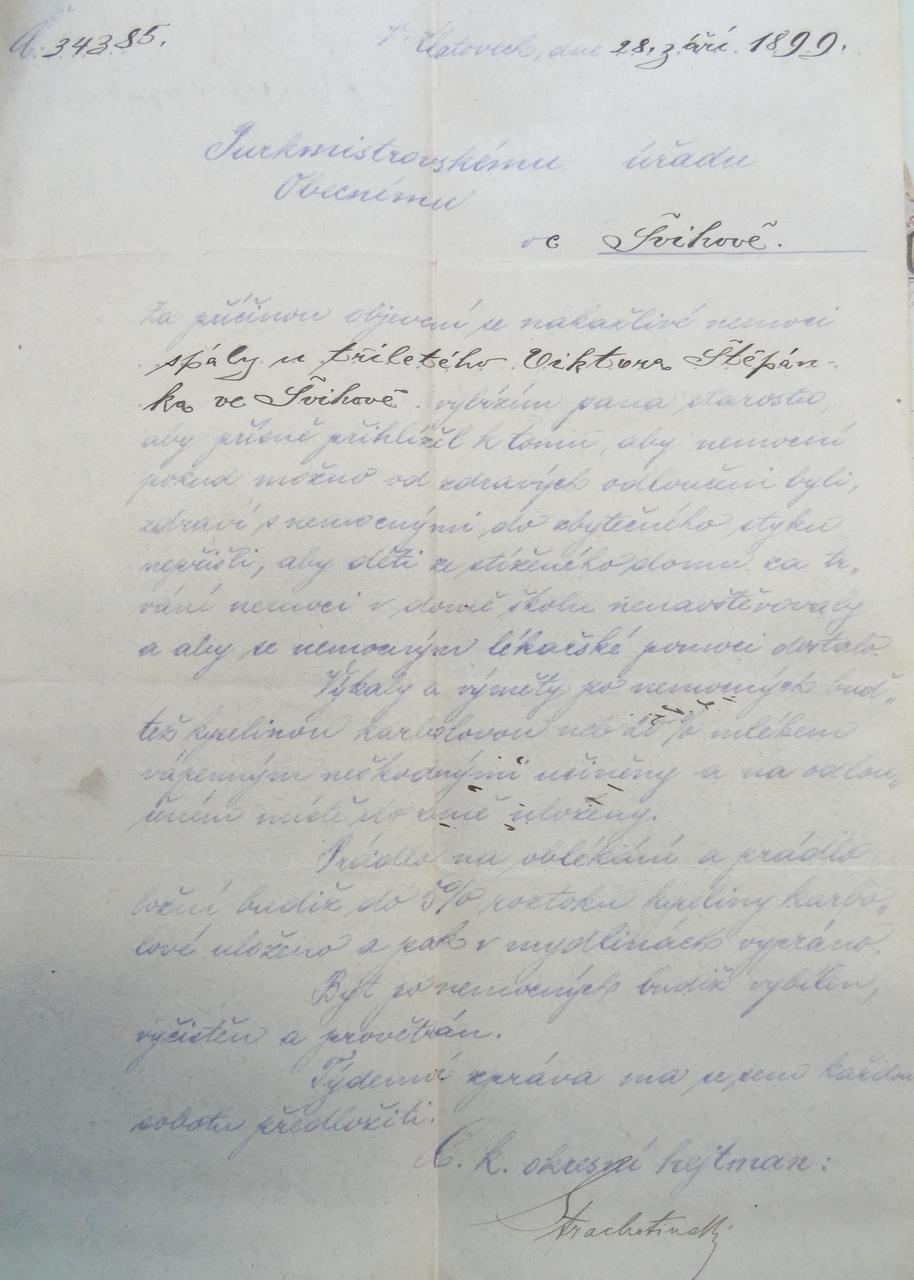 Č. 34385.
V Klatovech, dne 28. září 1899.
Purkmistrovskému úřadu
Obecnímu
ve Švihově.
Za příčinou objevení se nakažlivé nemoci
spály u tříletého Viktora Štěpán-
ka ve Švihově vybízím pana starostu,
aby přísně přihlížel k tomu, aby nemocní
pokud možno od zdravých odloučeni byli,
zdraví s nemocnými do zbytečného styku
nepřišli, aby děti ze stíženého domu za tr„
vání nemoci v domě školu nenavštěvovaly
a aby se nemocným lékařské pomoci dostalo.
Výkaly a výměty po nemocných buď„
tež kyselinou karbolovou neb 20% mlékem
vápenným neškodnými učiněny a na odlou„
čeném místě do země uloženy.
Prádlo na oblékání a prádlo
ložní budiž do 5% roztoku kyseliny karbo„
lové uloženo a pak v mydlinách vypráno.
Byt po nemocných budiž vybílen,
vyčistěn a provětrán.
Týdenní zpráva ma se sem každou
sobotu předložiti.
C. k. okresní hejtman: